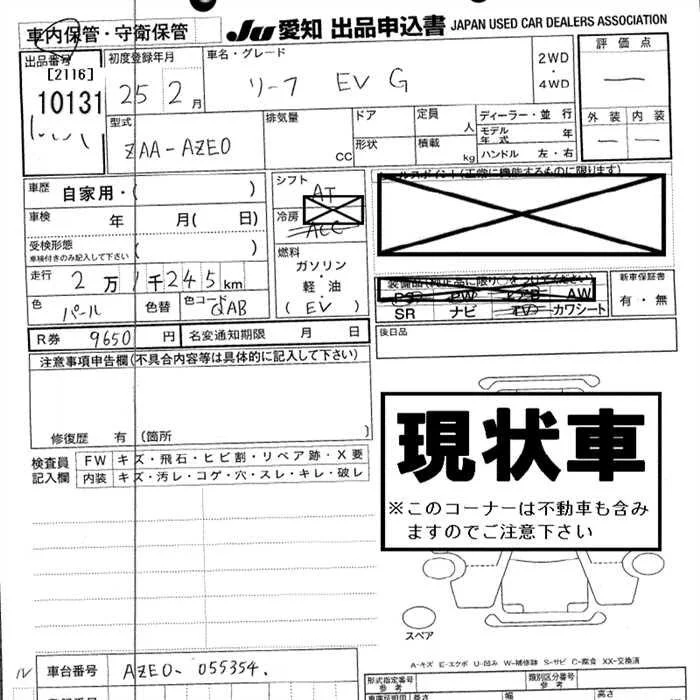 車内保管・守衛保管
Ju 愛知 出品申込書 JAPAN USED CAR DEALERS ASSOCIATION
出品番号
[2116]
10131
初度登録年月
25 2月
車名・グレード
リーフ EV G
2WD
・
4WD
評価点
外装 内装
型式
ZAA-AZE0
排気量
CC
ドア
形状
定員
人
積載
kg
ディーラー・並行
モデル年式 年
ハンドル 左・右
車歴 自家用・( )
車検 年 月( 日)
受検形態 ( )
車検付きのみ記入して下さい
走行 2万1千245km
色 パール 色替 色コード QAB
シフト
AT
冷房
ACC
燃料
ガソリン
・
軽油
・
(EV)
(正常に機能するものに限ります)
装備品(純正品に限り○をつけてください)
PS PW AW
SR ナビ TV カワシート
新車保証書
有・無
後日品
R券 9650円 名変通知期限 月 日
注意事項申告欄(不具合内容等は具体的に記入して下さい)
修復歴 有 (箇所 )
検査員
記入欄
FW キズ・飛石・ヒビ割・リペア跡・X要
内装 キズ・汚レ・コゲ・穴・スレ・キレ・破レ
現状車
※このコーナーは不動車も含み
ますのでご注意下さい
スペア
A-キズ E-エクボ U-凹み W-補修跡 S-サビ C-腐食 XX-交換済
車台番号 AZE0-055354.
形式指定番号
参考
類別区分番号
参考
長さ 幅 高さ